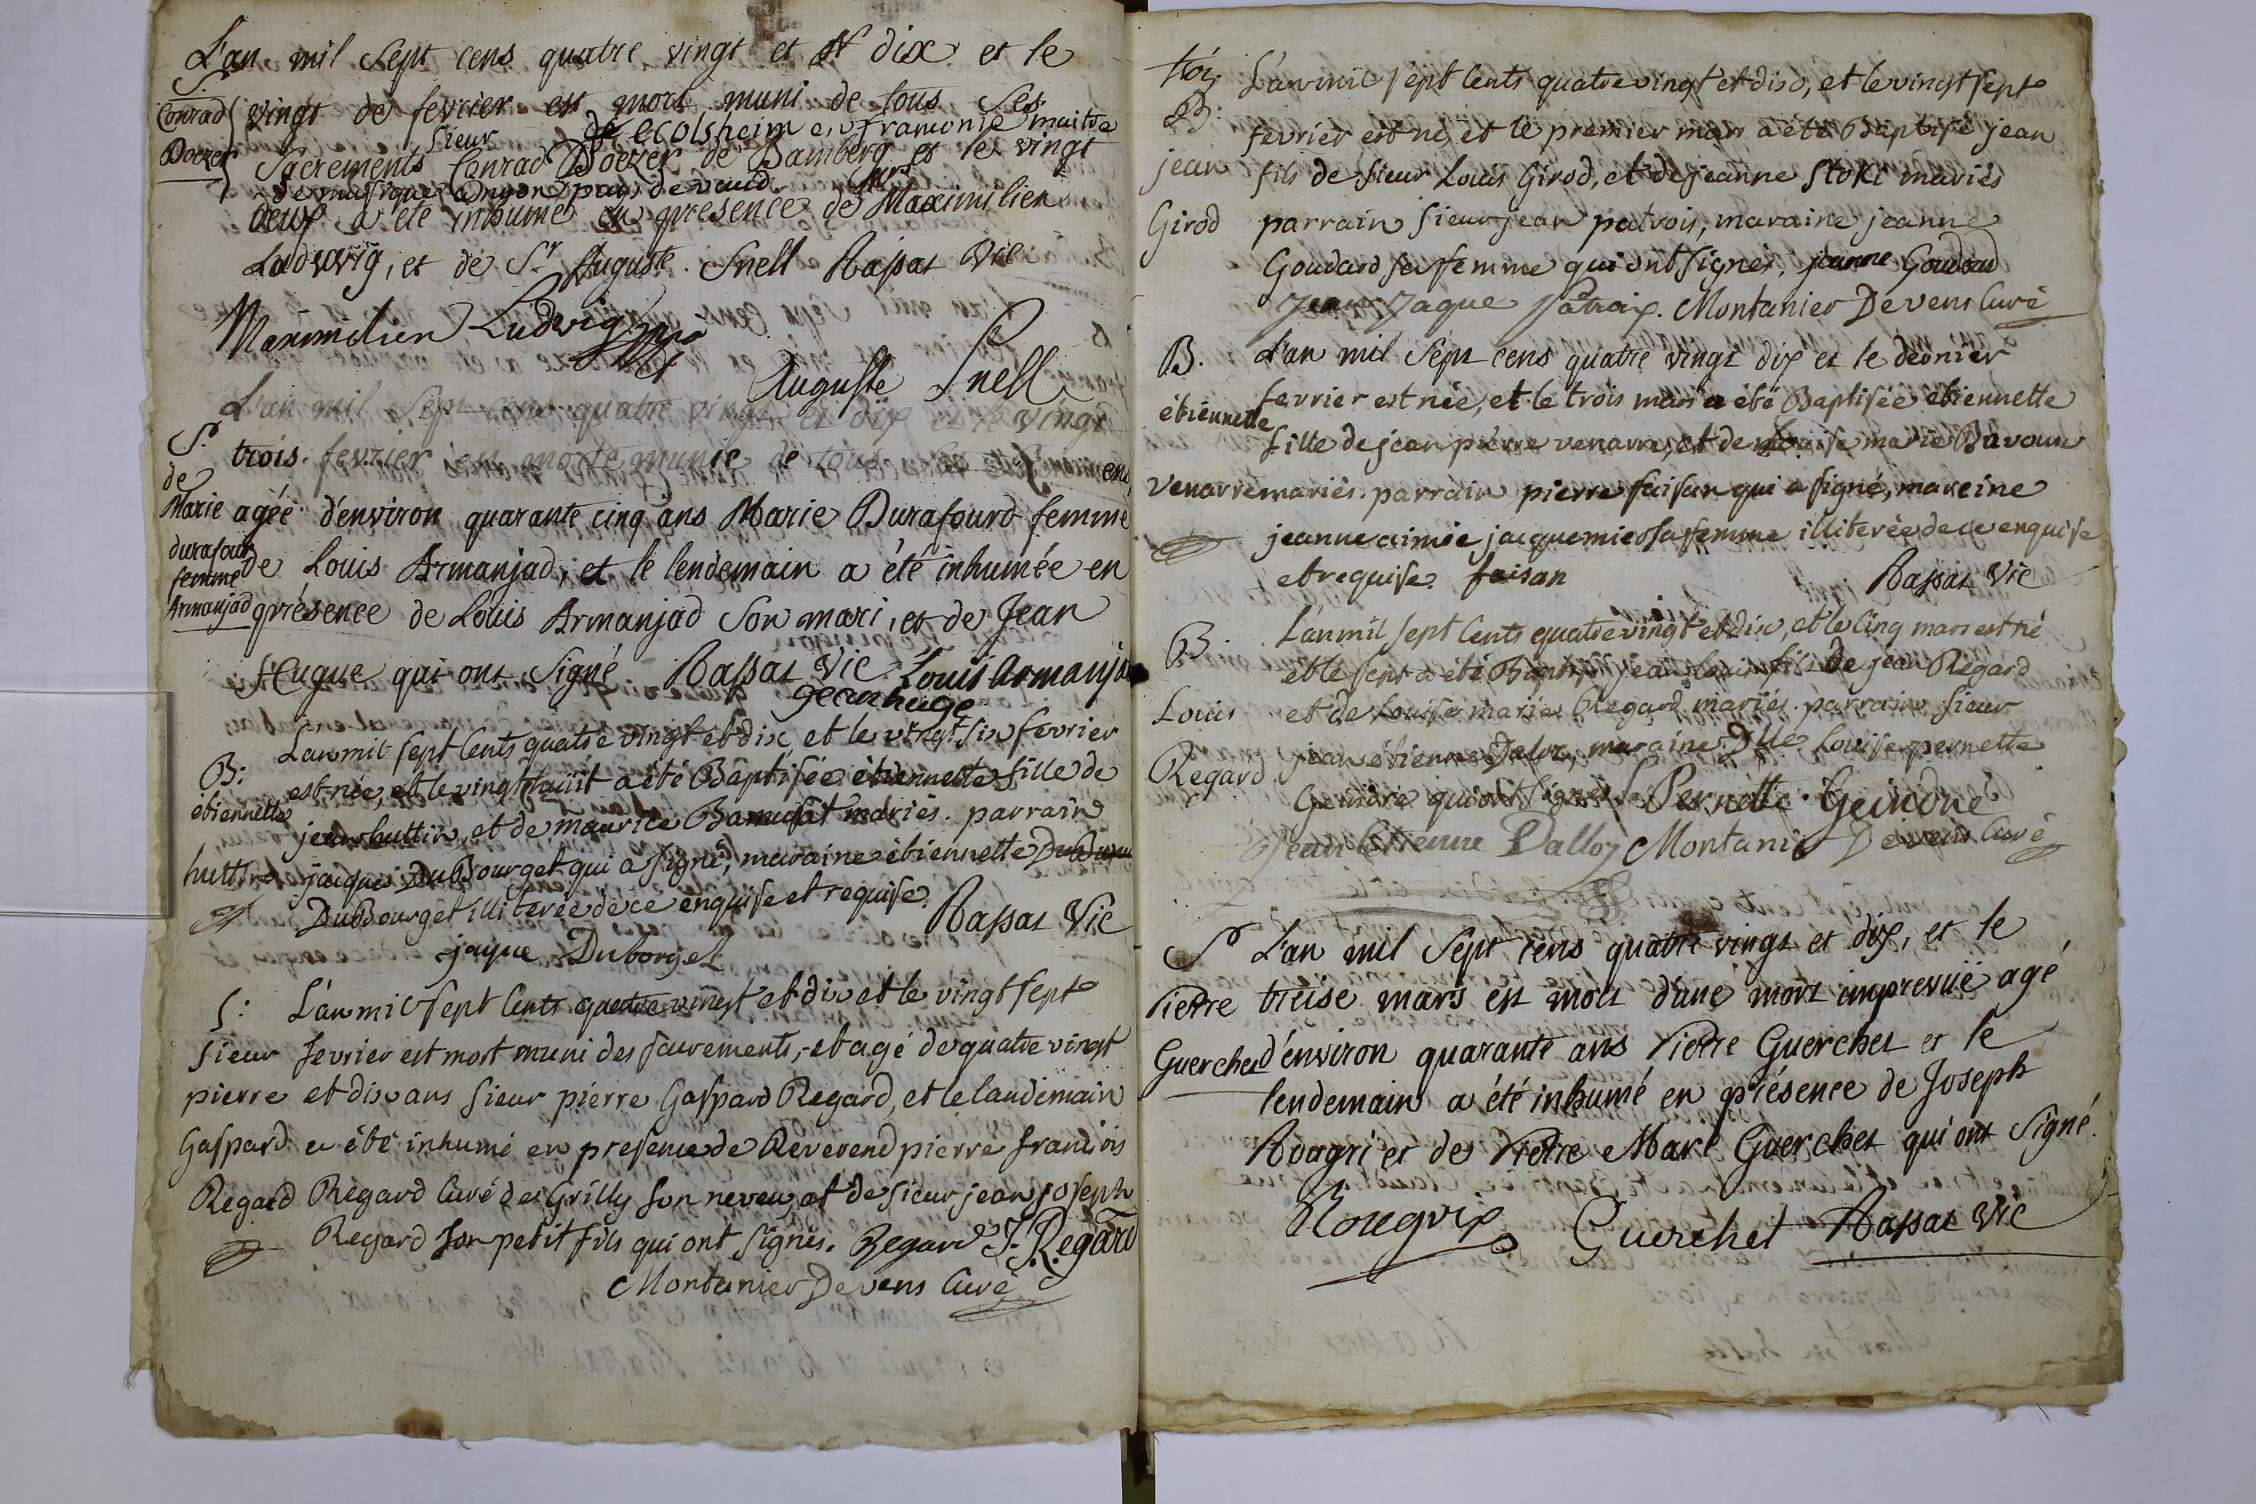 L'an mil Sept cens quatre vingt et dix et le
S.
Conrad
Doezer
vingt de fevrier est mort muni de tous Ses
sieur de ecolsheim en franconie maitre
Sacrements Conrad Doezer de Bamberg et le vingt
de musique a nyon pays de vaud. Surs
deux a été inhumé en présence de Maximilien
Ludwig, et de Sr. Auguste Snell Rassat Vic
Maximilien Ludwig
Auguste Snell
L'an mil Sept cens quatre vingt et dix et le vingt
S.
de
Marie
durafour
femme
Armanjad
trois fevrier est morte munie de tous
agée d'environ quarante cinq ans Marie Durafourd femme
de Louis Armanjad, et le lendemain a été inhumée en
présence de Louis Armanjad Son mari, et de Jean
Hugue qui ont Signé Rassat Vic Louis armanja
jean huge
B:
étiennette
huttin
L'an mil sept Cents quatre vingt et dix, et le vingt six fevrier
est née, et le vingt huit a été Baptisée étiennette fille de
jean huttin, et de maurice Bamusat mariés. parrain
jacques DuBourget qui a signé, maraine étiennette
DuBourget illiterée de ce enquise et requise. Rassat Vic
jaque Duborget
S:
Sieur
pierre
Gaspard
Regard
L'an mil sept Cents quatre vingt et dix et le vingt sept
fevrier est mort muni des sacrements, et agé de quatre vingt
et dix ans Sieur pierre Gaspard Regard, et le landemain
a été inhumé en presence de Reverend pierre francois
Regard Curé de Grilly son neveu, et de sieur jean joseph
Regard son petit fils qui ont signés. Regard J. Regard
Montanier Devens Curé
B:
jean
Girod
L'an mil sept Cents quatre vingt et dix, et le vingt sept
fevrier est né, et le premier mars a été Baptisé jean
fils de sieur Louis Girod, et de jeanne Stoki mariés
parrain Sieur jean patrois, maraine jeanne
Goudard sa femme qui ont signés, jeanne Goudard
Jean Jaque Patroix. Montanier Devens Curé
B.
étiennette
Venarre
L'an mil Sept cens quatre vingt dix et le dernier
fevrier est née, et le trois mars a été Baptisée étiennette
fille de jean pierre venarre, et de Louise marie Bavoux
mariés. parrain pierre faisan qui a signé, mareine
jeanne aimée jacquemier sa femme illiterée de ce enquise
et requise. faisan Rassat Vic
B.
Louis
Regard
L'an mil sept Cents quatre vingt et dix, et le Cinq mars est né
et le sept a été Baptisé jean louis fils de jean Regard
et de Louise marie Regard mariés. parrain Sieur
jean étienne Daloz, maraine Dlle. Louise pernette
Geindre qui ont signés Pernette Geindre
Jean Etienne Dalloz Montanier Devens Curé
S
Pierre
Guerchet
L'an mil Sept cens quatre vingt et dix, et le
treise mars est mort d'une mort imprevuë agé
d'environ quarante ans Pierre Guerchet et le
lendemain a été inhumé en présence de Joseph
et des Pierre Marc Guerchet qui ont Signé.
Guerchet Rassat Vic